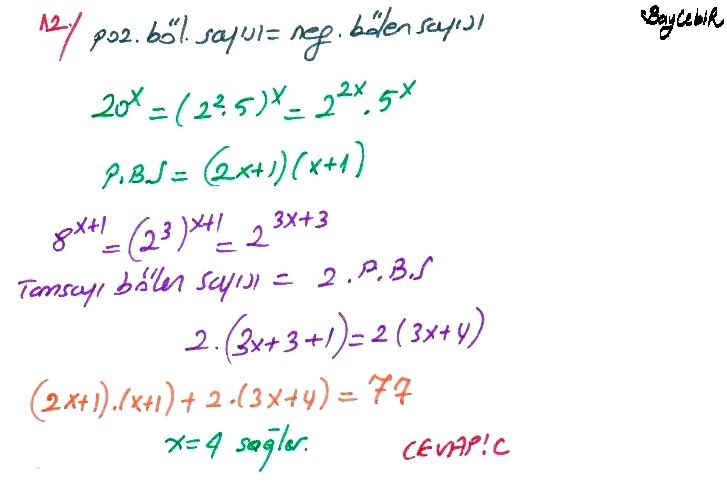 BayCebiR
12.) poz. böl. sayısı = neg. bölen sayısı
20^x = (2^2.5)^x = 2^2x . 5^x
P.B.S = (2x+1)(x+1)
8^x+1 = (2^3)^x+1 = 2^3x+3
Tamsayı bölen sayısı = 2.P.B.S
2.(3x+3+1) = 2(3x+4)
(2x+1).(x+1) + 2.(3x+4) = 77
x=4 sağlar.
CEVAP: C